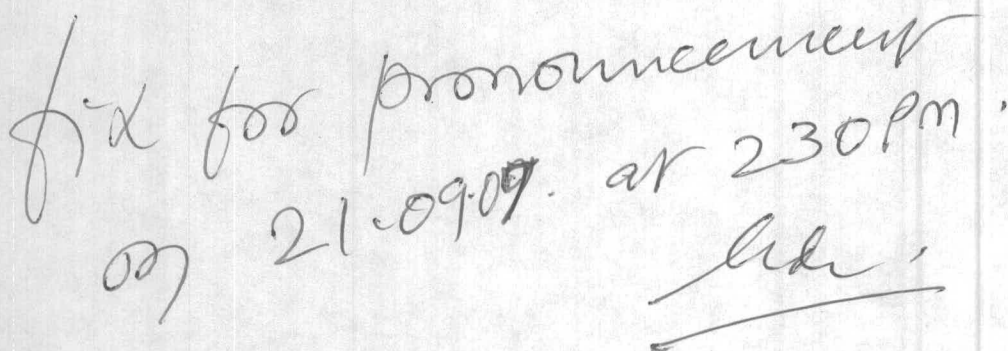 fix for pronouncement
on 21.09.07. at 230 PM.